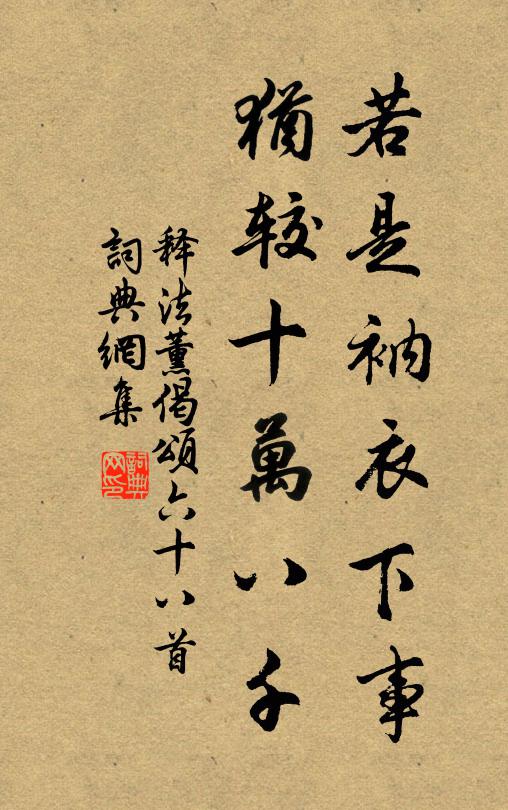 若是衲衣下事
猶较十萬八千
释法薰偈頌六十八首
詞典網集
詞典网印